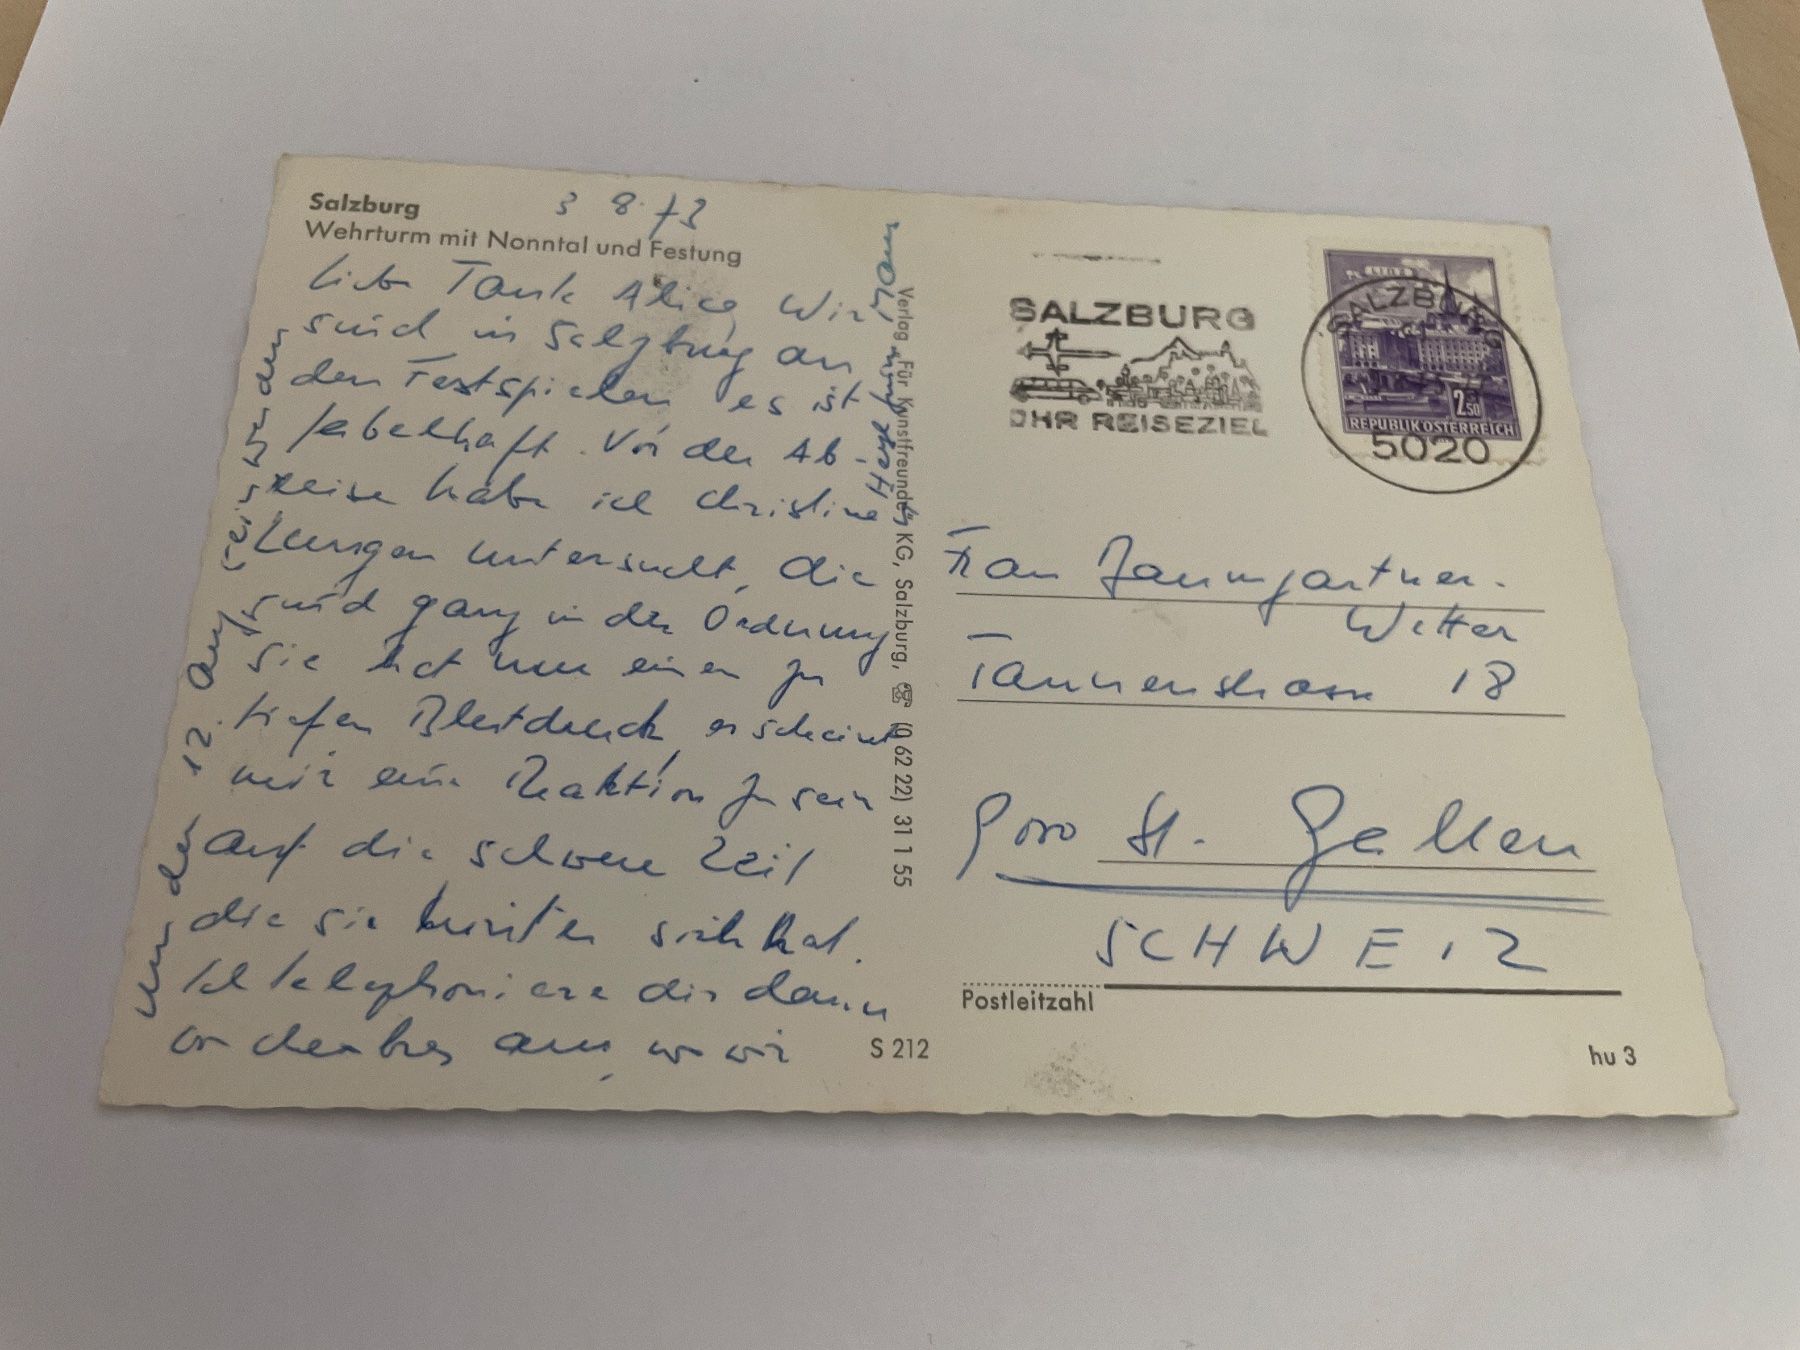 Salzburg
Wehrturm mit Nonntal und Festung
3 8. 73
Liebe Tante Alice, Wir
sind in Salzburg an
den Festspielen es ist
fabelhaft. Vor der Ab-
reise habe ich Christine
Lungen untersucht, die
sind ganz in der Ordnung
Sie hat nur einen zu
tiefen Blutdruck, erscheint
mir eine Reaktion zu sein
auf die schwere Zeit
die sie hinter sich hat.
Ich telephoniere dir dann
aus, wo wir
um den 12. Aug
sein werden
Herzl
Verlag „Für Kunstfreunde“ KG, Salzburg, ☏ (0 62 22) 31 1 55
S 212
SALZBURG
IHR REISEZIEL
SALZBURG
5020
2.50
REPUBLIK ÖSTERREICH
Frau Baumgartner-
Wetter
Tannenstrasse 18
9000 St. Gallen
SCHWEIZ
Postleitzahl
hu 3